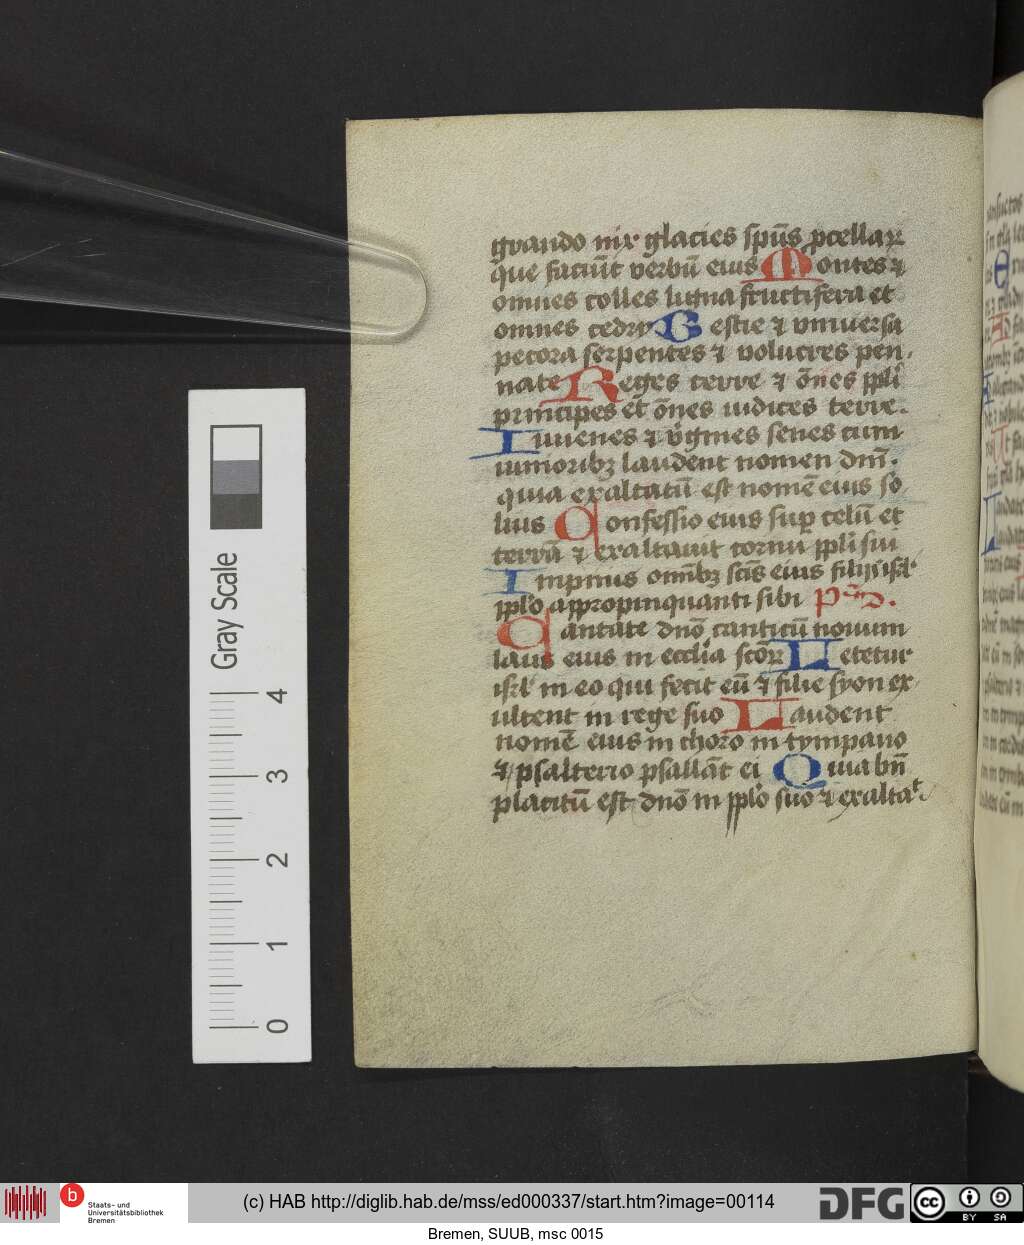 grando nix glacies spūs pcellaꝝ
que faciūt verbū eius Montes ⁊
omnes colles ligna fructifera et
omnes cedri Bestie ⁊ vniuersa
pecora serpentes ⁊ volucres pen
nate Reges terre ⁊ om̄es ppli
principes et om̄es iudices terre.
Iuuenes ⁊ v̓gines senes cum
iunioribꝫ laudent nomen dnī.
quia exaltatū est nomē eius so
lius Confessio eius sup celū et
terrā ⁊ exaltauit cornu ppli sui
Impnus om̄ibꝫ scīs eius filijs isrl
pplo appropinquanti sibi ps.
Cantate dnō canticū nouum
laus eius in ecclia scōꝝ Letetur
isrl in eo qui fecit eū ⁊ filie syon ex
ultent in rege suo Laudent
nomē eius in choro in tympano
⁊ psalterio psallāt ei Quia bn̄
placitū est dnō in pplo suo ⁊ exaltat
Gray Scale
0 1 2 3 4
b Staats- und
Universitätsbibliothek
Bremen
(c) HAB http://diglib.hab.de/mss/ed000337/start.htm?image=00114
DFG
cc BY SA
Bremen, SUUB, msc 0015